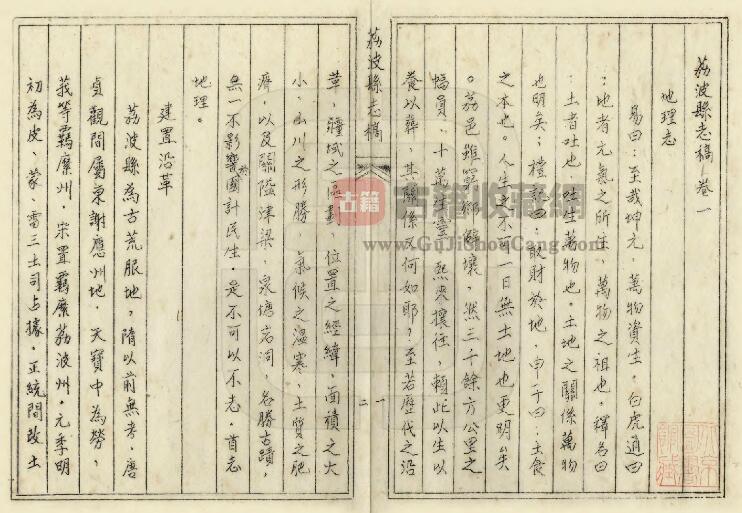 荔波縣志稿卷一
地理志
易曰：至哉坤元，萬物資生。白虎通曰
：地者元氣之所生，萬物之祖也。釋名曰
：土者吐也，吐生萬物也。土地之關係萬物
也明矣；禮記曰：取財於地，申子曰：土食
之本也。人生之不可一日無土地也更明矣
。荔邑雖窮鄉僻壤，然三千餘方公里之
幅員，十萬生靈，熙來攘往，賴此以生以
養以葬，其關係又何如耶？至若歷代之沿
荔波縣志稿
一
二
革，疆域之區劃，位置之經緯，面積之大
小，山川之形勝，氣候之溫寒，土質之肥
瘠，以及關隘津梁，泉塘岩洞，名勝古蹟，
無一不影響於國計民生，是不可以不志。首志
地理。
建置沿革
荔波縣為古荒服地，隋以前無考，唐
貞觀間屬東謝應州地，天寶中為勞、
莪等羈縻州，宋置羈縻荔波州。元季明
初為皮、蒙、雷三土司占據，正統間改土
古籍
古籍收藏网
www.GuJiShouCang.com